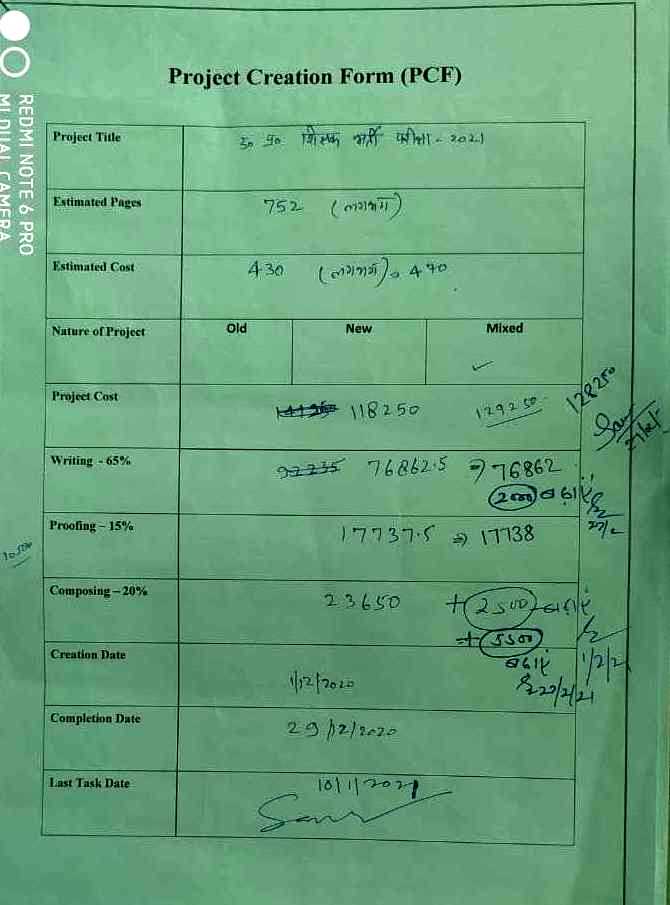 REDMI NOTE 6 PRO
MI DUAL CAMERA
Project Creation Form (PCF)
Project Title
उ० प्र० शिक्षक भर्ती परीक्षा - 2021
Estimated Pages
752 (लगभग)
Estimated Cost
430 (लगभग)
Nature of Project
Old New Mixed
✓
Project Cost
118250 129250 128250
Writing - 65%
76862.5 ⇒ 76862
बढ़ाएं
Proofing – 15%
17737.5 ⇒ 17738
Composing – 20%
23650 + 2500 बढ़ाएं
+ 5500
बढ़ाएं 1/2/2
Creation Date
1/12/2020
22/2/21
Completion Date
29/12/2020
Last Task Date
10/1/2021